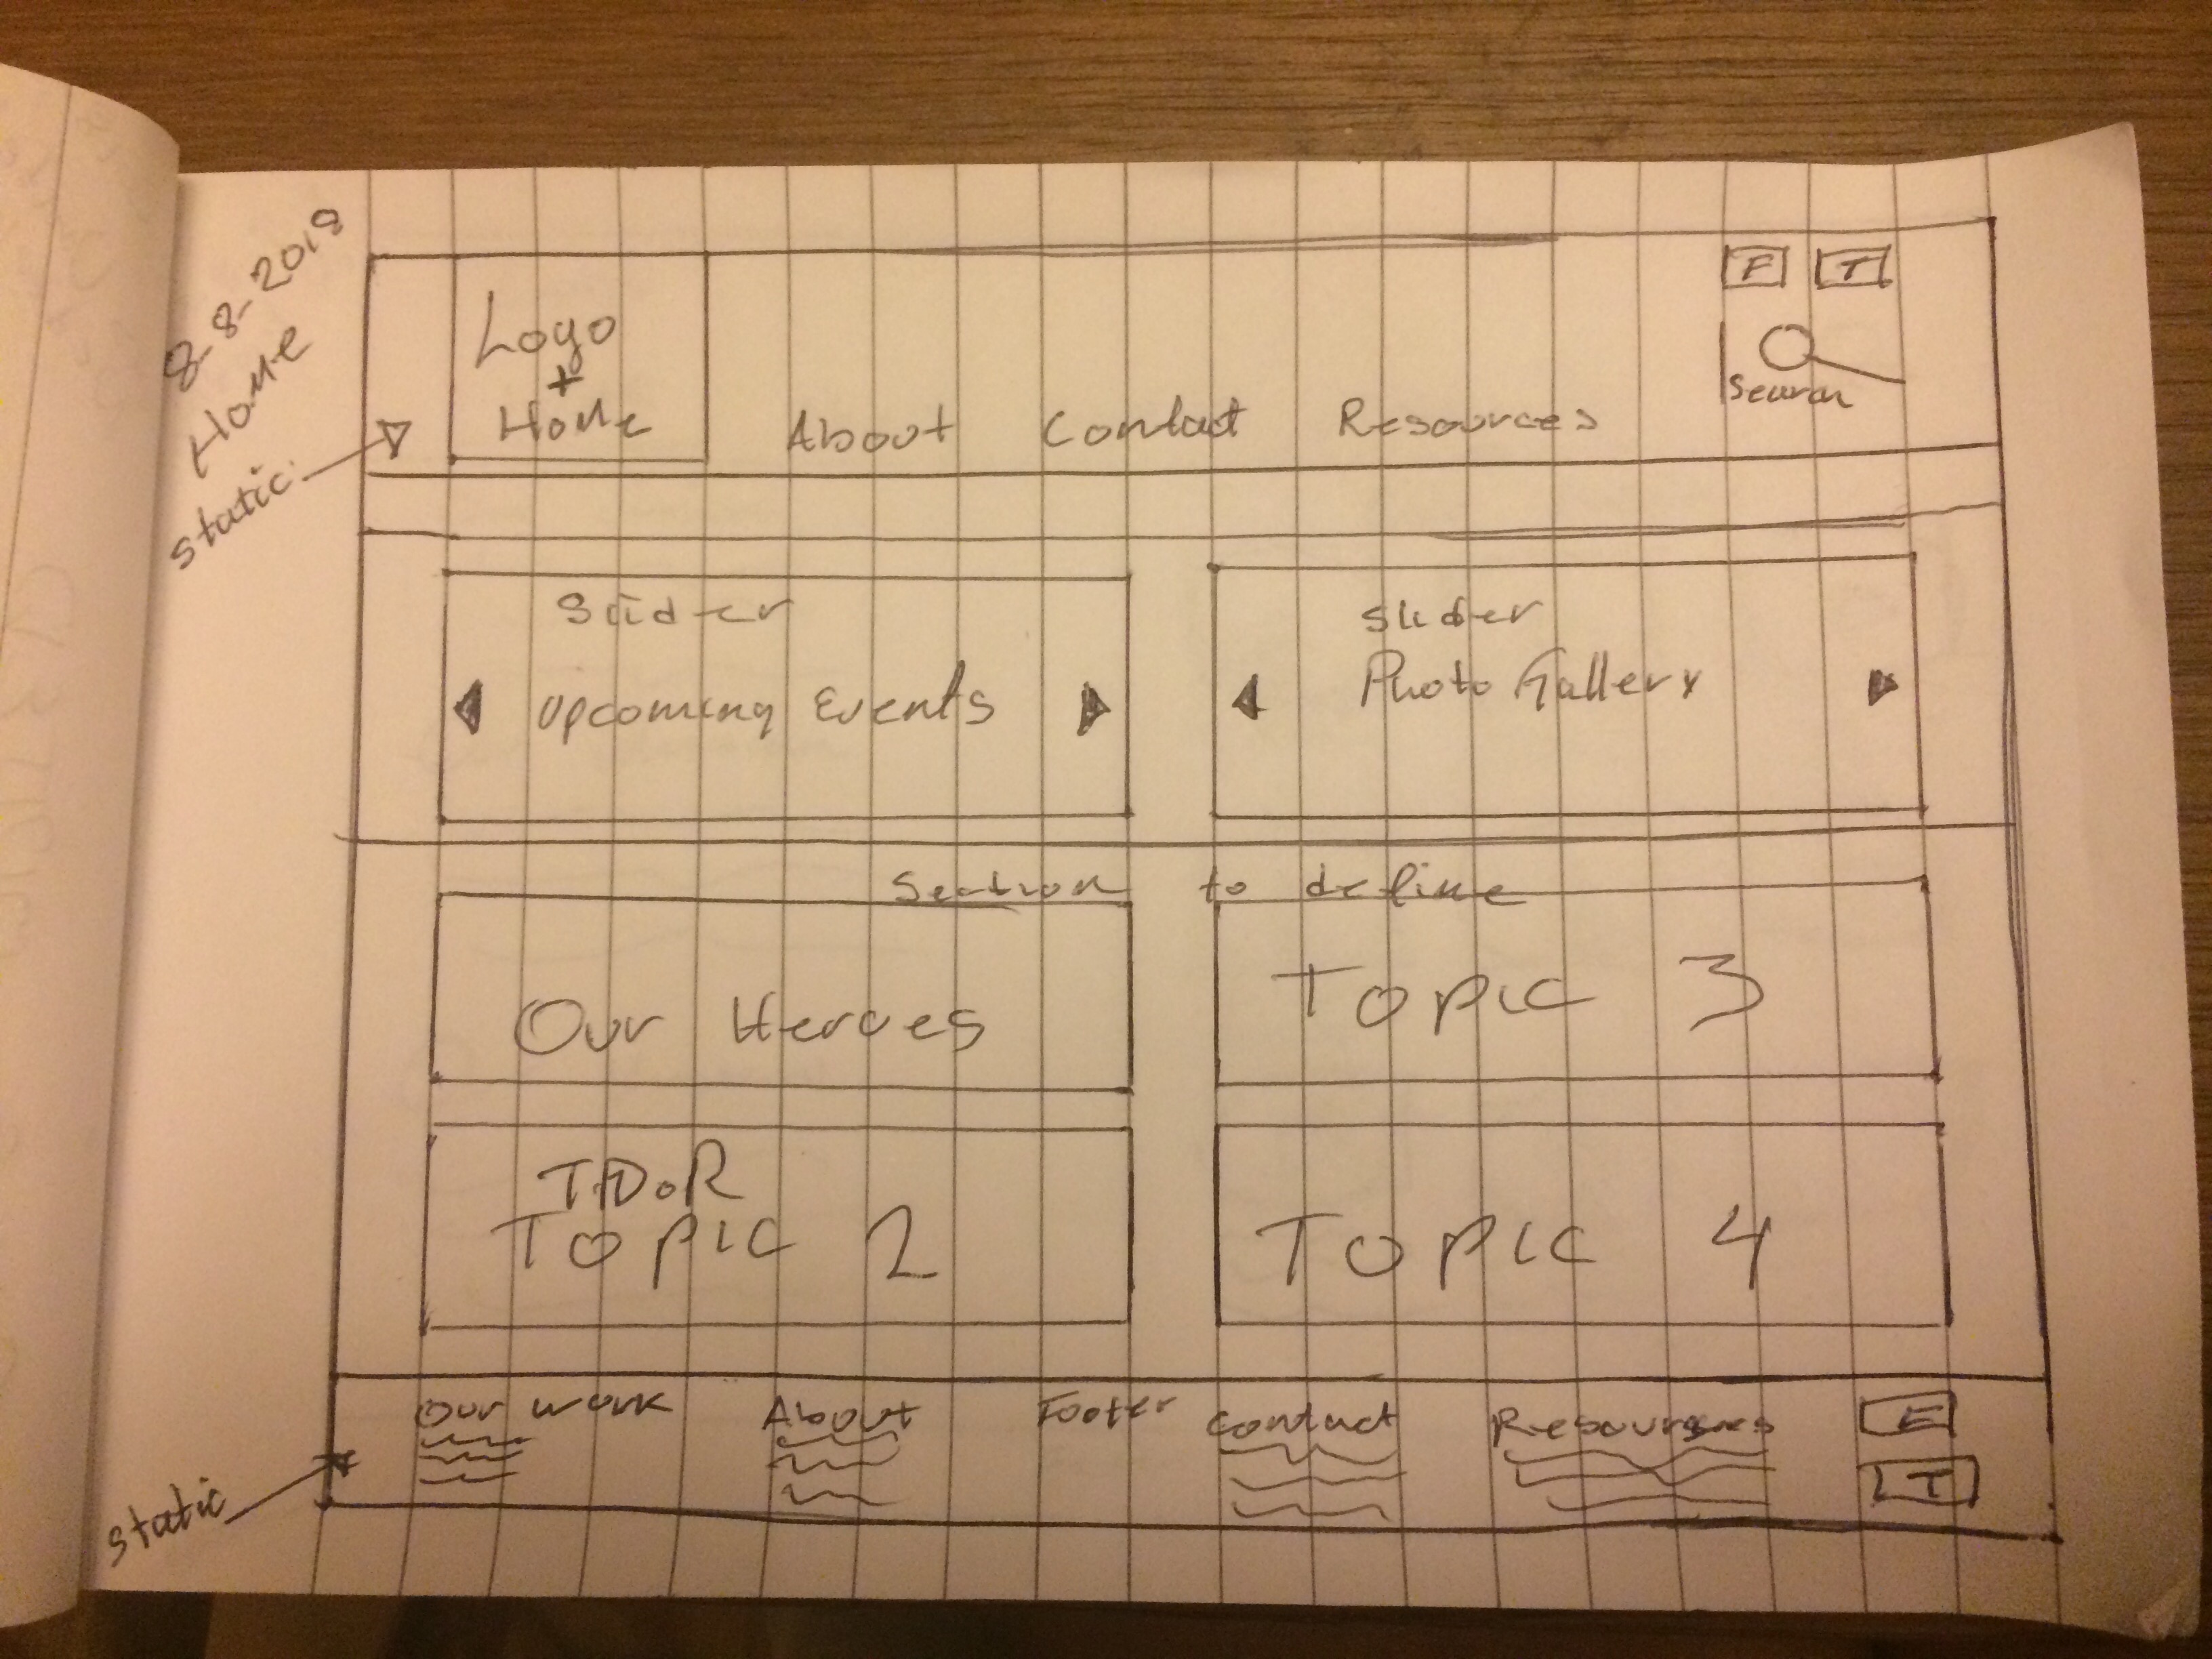 8-8-2018
Home
static
Logo
+
Home
About Contact Resources
F T
Search
Slider
Upcoming Events
Slider
Photo Gallery
Section to define
Our Heroes
Topic 3
TDoR
Topic 2
Topic 4
Our work About Footer Contact Resources F
T
static